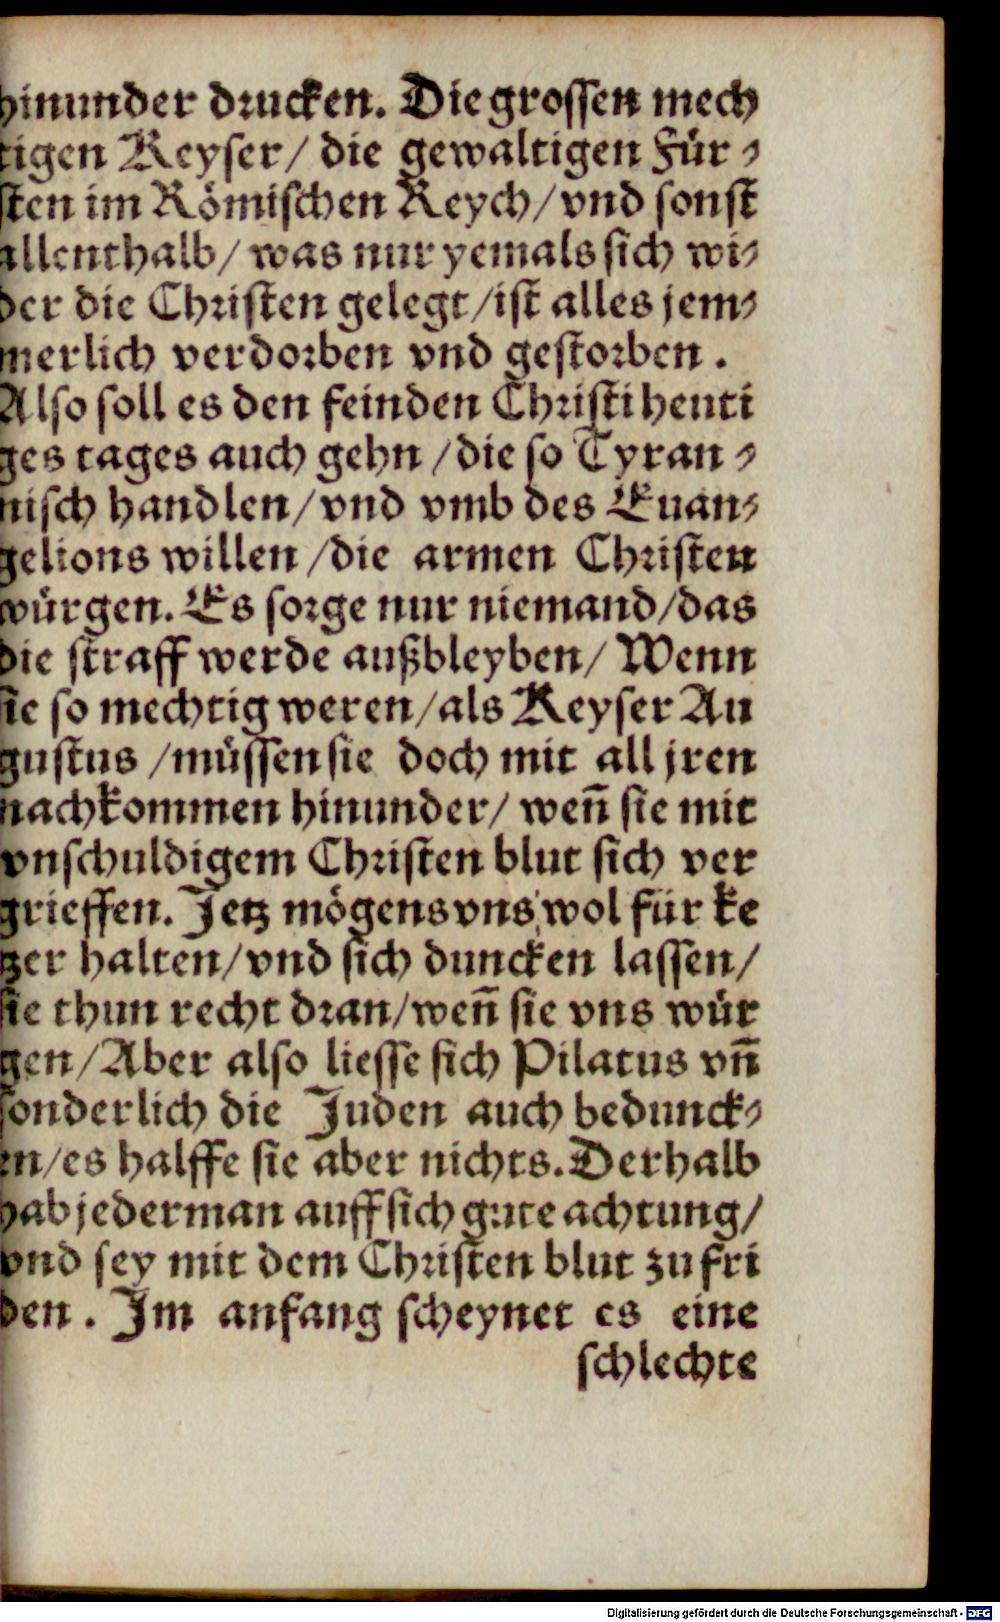 hinunder drucken. Die grossen mech
tigen Keyser/ die gewaltigen Für⸗
sten im Römischen Reych/ vnd sonst
allenthalb/ was nur yemals sich wi⸗
der die Christen gelegt/ ist alles jem⸗
merlich verdorben vnd gestorben.
Also soll es den feinden Christi heuti
ges tages auch gehn/ die so Tyran⸗
nisch handlen/ vnd vmb des Euan⸗
gelions willen/ die armen Christen
würgen. Es sorge nur niemand/ das
die straff werde außbleyben/ Wenn
sie so mechtig weren/ als Keyser Au
gustus/ müssen sie doch mit all jren
nachkommen hinunder/ weñ sie mit
vnschuldigem Christen blut sich ver
grieffen. Jetz mögens vns wol für ke
tzer halten/ vnd sich duncken lassen/
sie thun recht dran/ weñ sie vns wür
gen/ Aber also liesse sich Pilatus vñ
sonderlich die Juden auch bedunck⸗
en/ es halffe sie aber nichts. Derhalb
hab jederman auff sich gute achtung/
vnd sey mit dem Christen blut zu fri
den. Im anfang scheynet es eine
schlechte
Digitalisierung gefördert durch die Deutsche Forschungsgemeinschaft - DFG